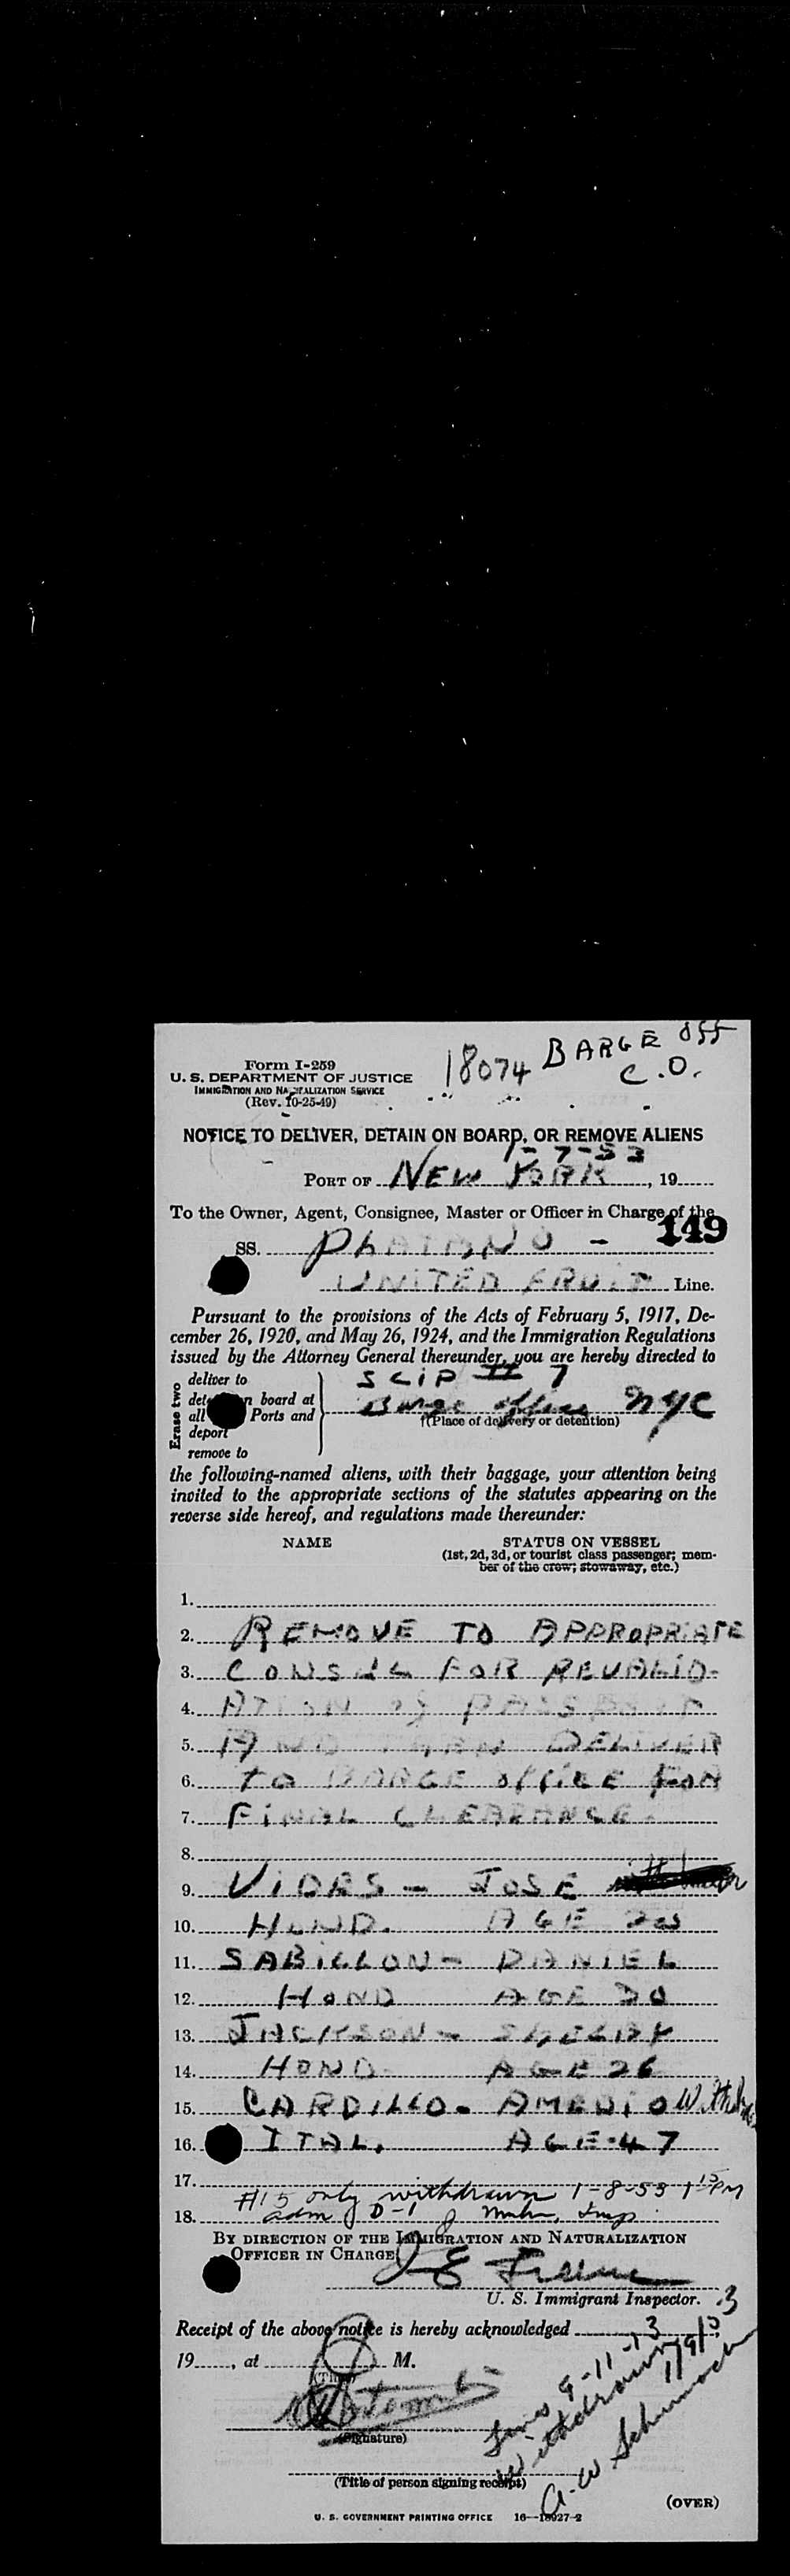 BARGE OFF
18074 C.O.
Form I-259
U. S. DEPARTMENT OF JUSTICE
IMMIGRATION AND NATURALIZATION SERVICE
(Rev. 10-25-49)
NOTICE TO DELIVER, DETAIN ON BOARD, OR REMOVE ALIENS
1-7-53
PORT OF NEW YORK, 19
To the Owner, Agent, Consignee, Master or Officer in Charge of the
149
SS. PLATANO -
UNITED FRUIT Line.
Pursuant to the provisions of the Acts of February 5, 1917, De-
cember 26, 1920, and May 26, 1924, and the Immigration Regulations
issued by the Attorney General thereunder, you are hereby directed to
Erase two
deliver to
SCIP II 7
on board at
all Ports and
Barge office NYC
(Place of delivery or detention)
deport
remove to
the following-named aliens, with their baggage, your attention being
invited to the appropriate sections of the statutes appearing on the
reverse side hereof, and regulations made thereunder:
NAME STATUS ON VESSEL
(1st, 2d, 3d, or tourist class passenger; mem-
ber of the crew; stowaway, etc.)
1.
2. REMOVE TO APPROPRIATE
3. CONSUL FOR REVALID-
4. ATION of PASSPORT
5. AND THEN DELIVER
6. TO BARGE OFFICE FOR
7. FINAL CLEARANCE.
8.
9. VIDES - JOSE
10. HOND. AGE
11. SABILLON - DANIEL
12. HOND AGE 30
13. JACKSON - SHELBY
14. HOND. AGE 26
15. CARDILLO - AMEDIO
16. ITAL. AGE-47
17. #15 only withdrawn 1-8-53 1 15 PM
18. adm D-1 Insp.
BY DIRECTION OF THE IMMIGRATION AND NATURALIZATION
OFFICER IN CHARGE
U. S. Immigrant Inspector.
Receipt of the above notice is hereby acknowledged
19, at M.
(Time)
(Signature)
9-11-13
Withdrawn 1/9/53
A. W. Schumach
(Title of person signing receipt)
(OVER)
U. S. GOVERNMENT PRINTING OFFICE 16—18027-2